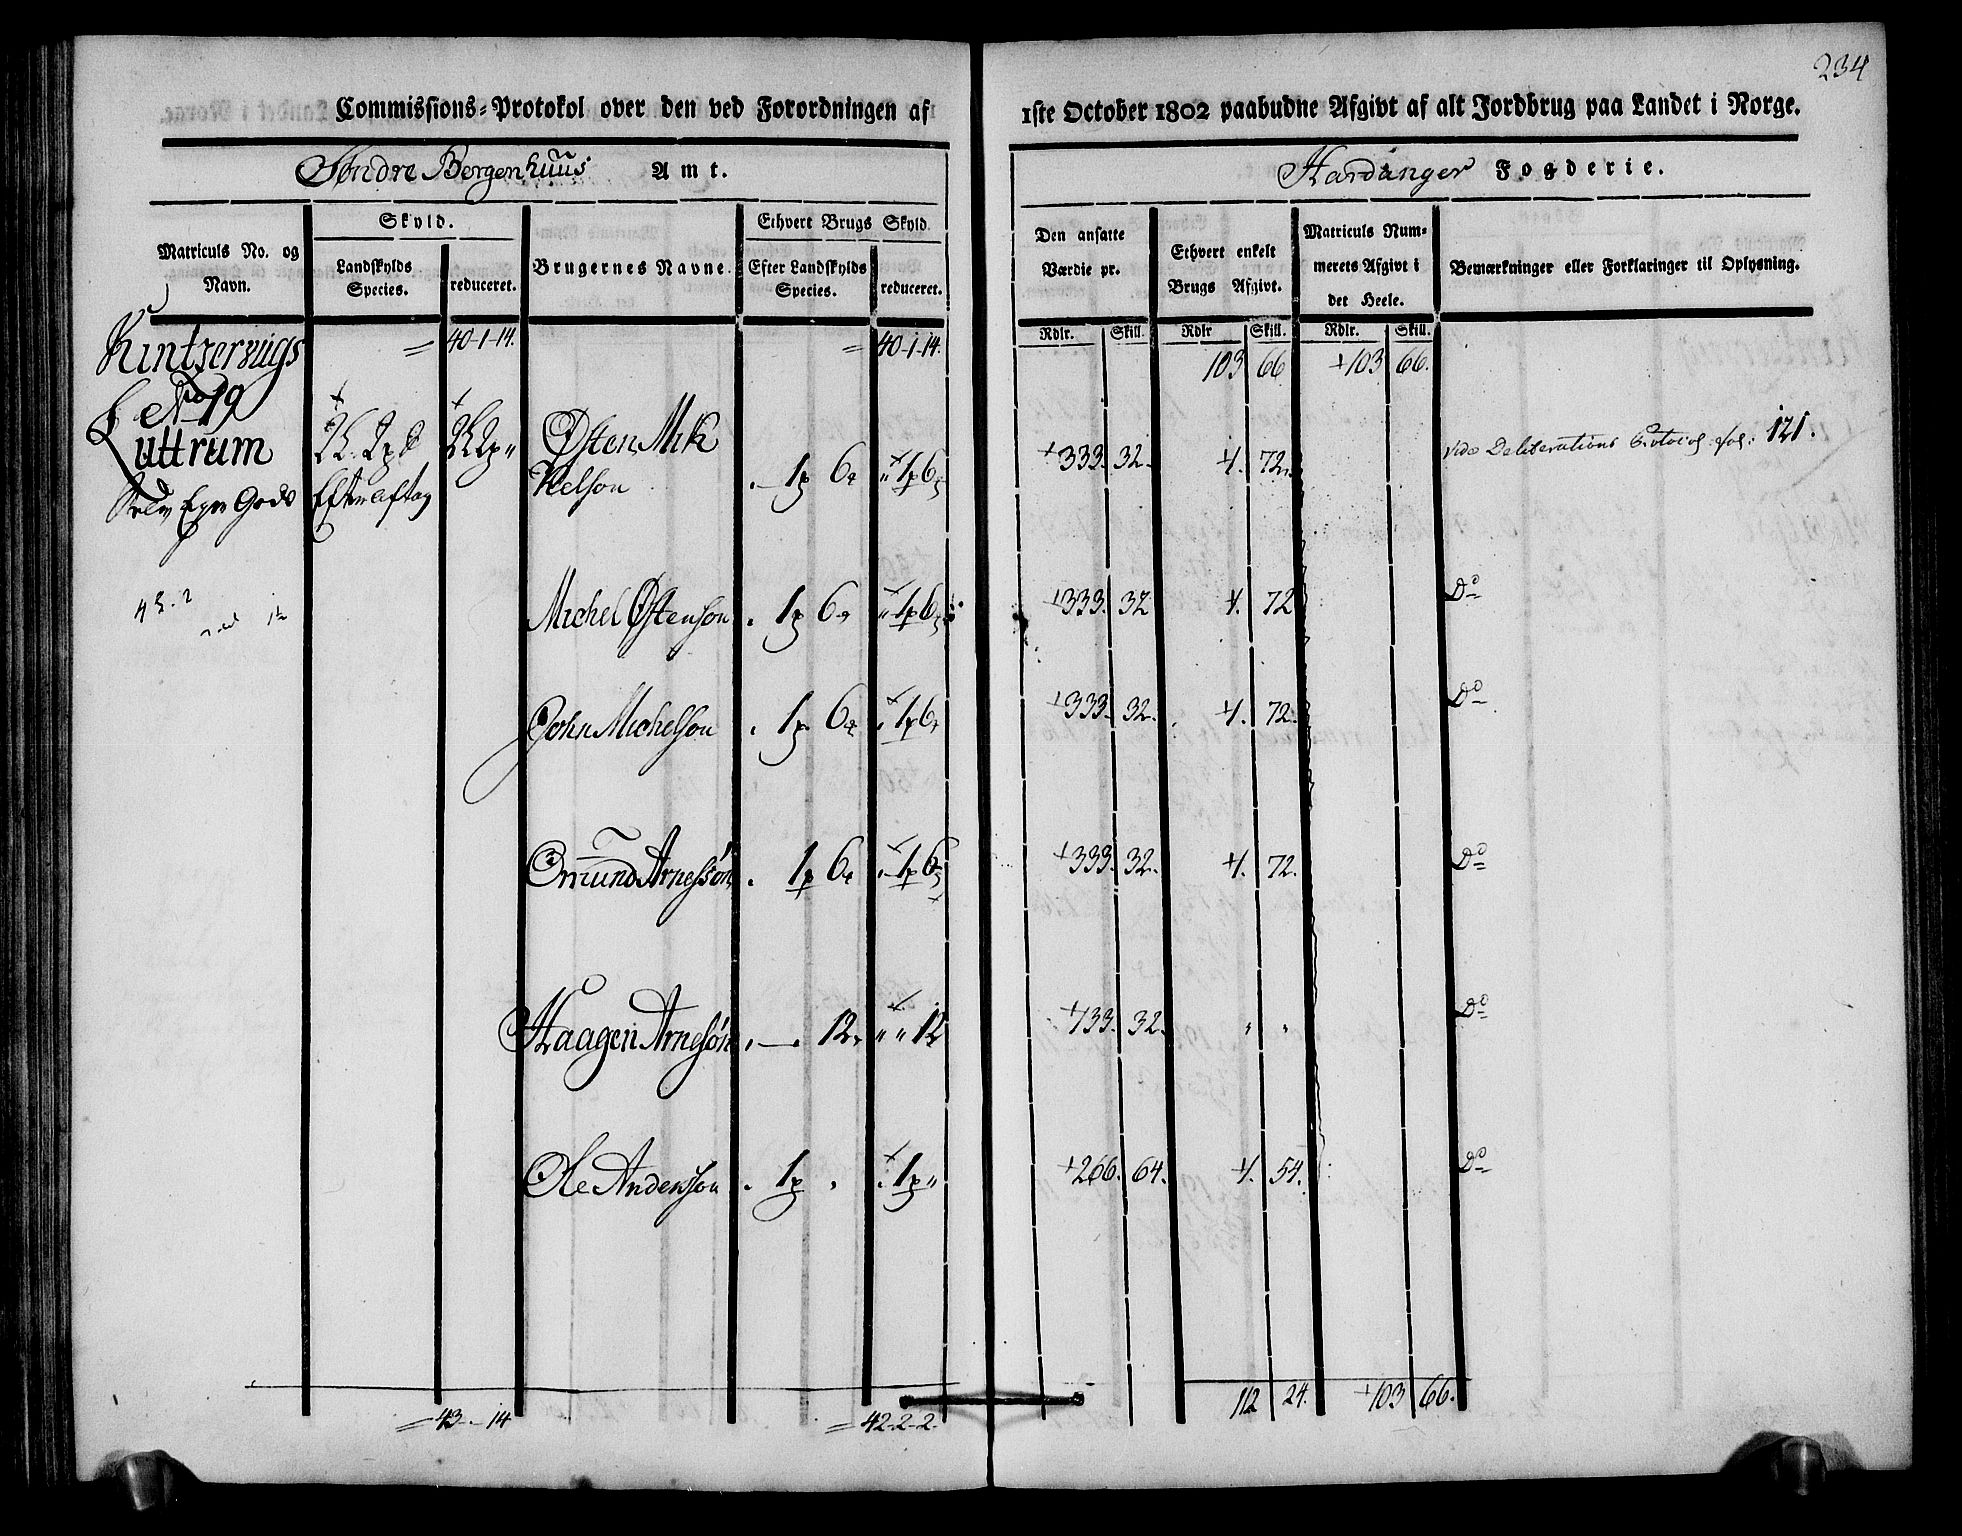 234
Commissions-Protokol over den ved Forordningen af 1ste October 1802 paabudne Afgivt af alt Jordbrug paa Landet i Norge.
Søndre Bergenhuus Amt. Hardanger Fogderie.
Matriculs No. og Navn.
Skyld.
Landskylds Species.
reduceret.
Brugernes Navne.
Ethvert Brugs Skyld.
Efter Landskylds Species.
reduceret.
Den ansatte Værdie pr.
Ethvert enkelt Brugs Afgivt.
Matriculs Nummerets Afgivt i det Heele.
Bemærkninger eller Forklaringer til Oplysning.
Rdlr. Skill. Rdlr Skill. Rdlr. Skill.
Kintzervigs = 40-1-14. = 40-1-14. 103 66 +103 66.
No 19
Luttrum Østen Mik
Helson 1 6 1 6 +333. 32. 4. 72. vide Deliberations Protocol fol: 121.
Selv Eyer Gods
Michel Østenson 1 6 1 6 +333. 32 4. 72 Do
John Michelson 1 6 1 6 +333. 32. 4. 72. Do
Omund Arnessøn 1 6 1 6 +333. 32. 4. 72. Do
Haagen Arnesøn 12 " " 12 +133. 32. " " Do
Ole Anderson 1 1 " +266. 64. 4. 54. Do
= 43. - 14 = 42-2-2. 112 24. +103 66.